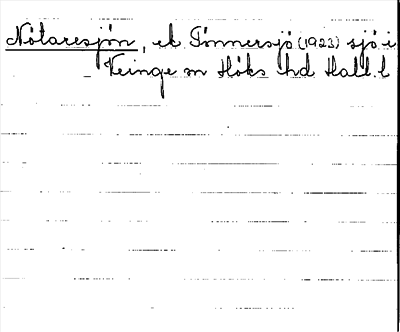 Nötaresjön, ek Tönnersjö (1923) sjö i
Veinge sn Höks hd Hall. l